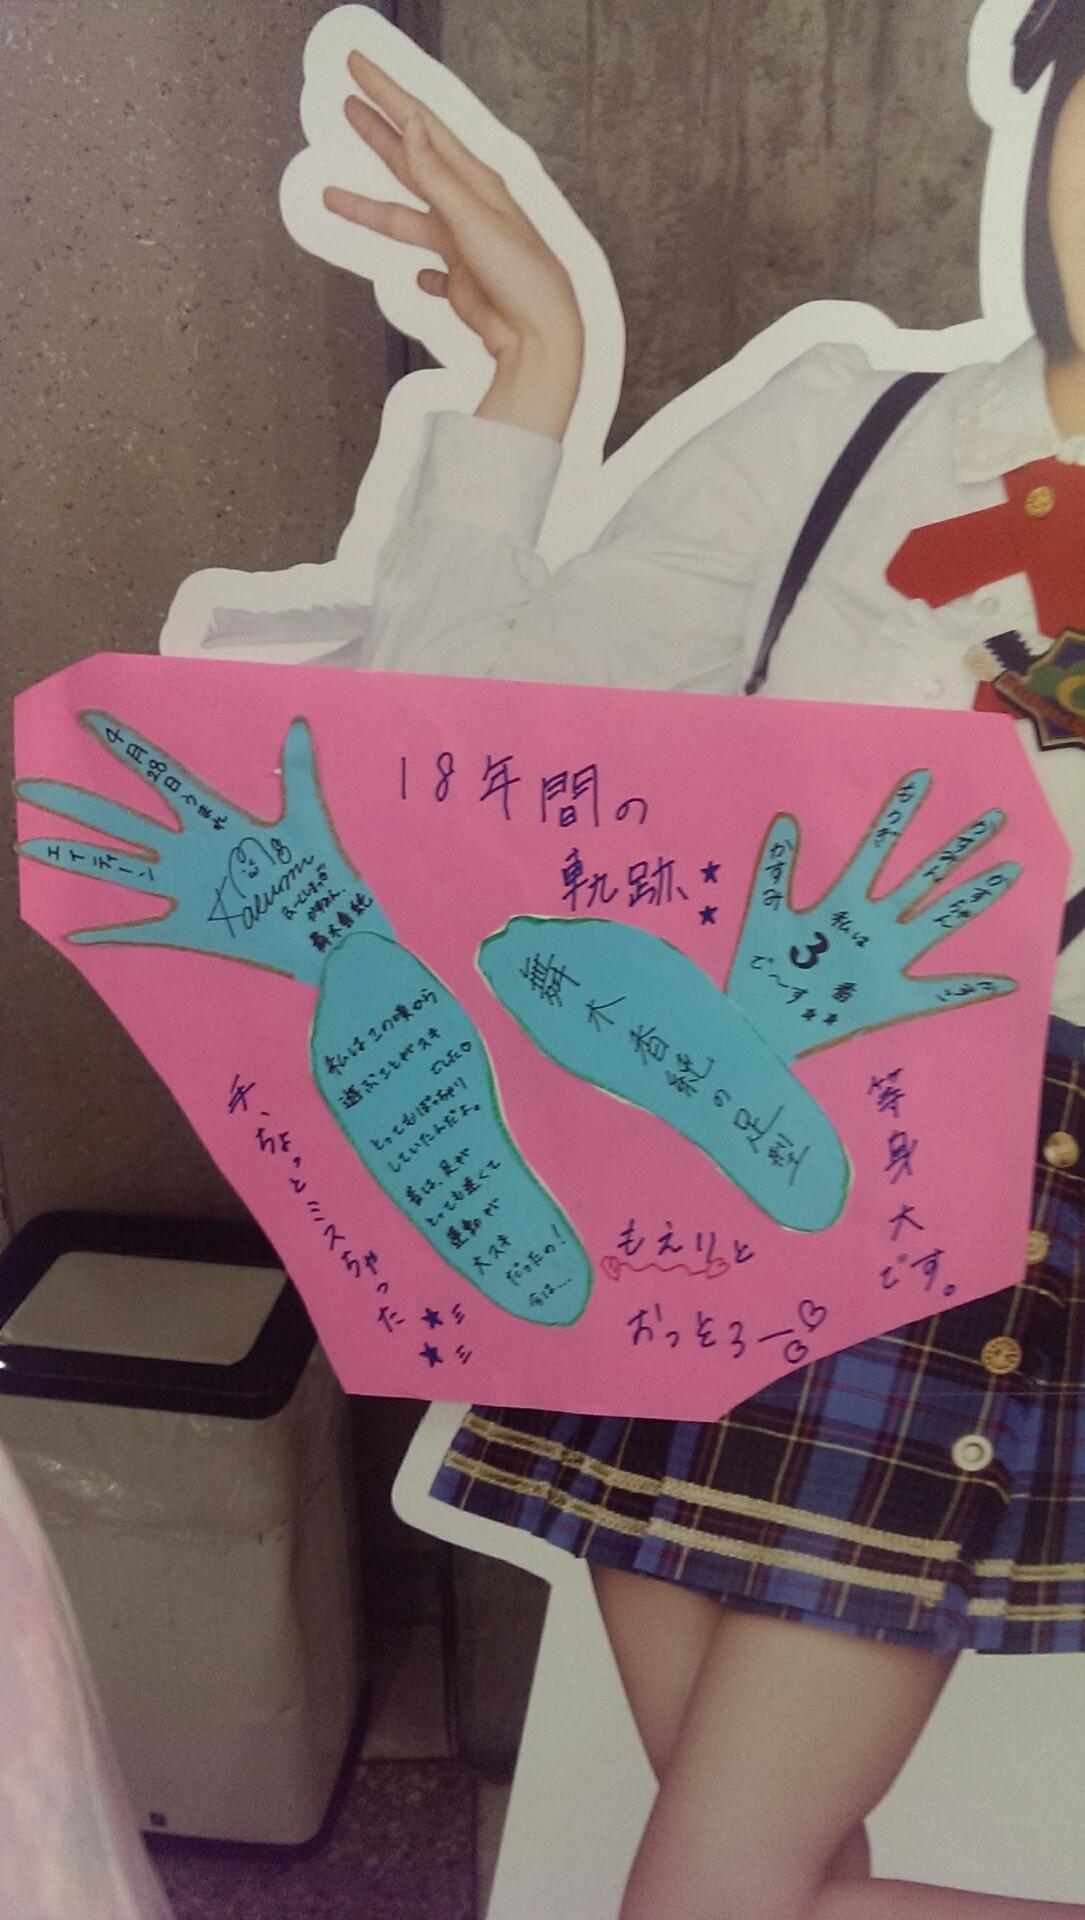 18年間の
軌跡★★
4月28日うまれ
エイティーン
Kasumi
舞木香純
私はこの頃から
遊ぶことがスキ
でした♡
とってもぽっちゃり
していたんだよ。
昔は、足が
とっても速くて
運動が
大スキ
だったの！
今は…
舞木香純の足型
かすみ
もっぎ
かすみん
私は
3番
で〜す★★
等身大です。
手、ちょっとミスちゃった★ミ★ミ
もえりと
おっそろー♡♡